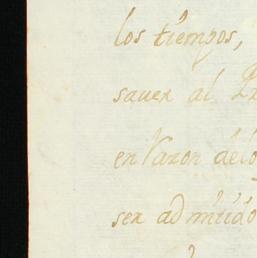 los tiempos,
saver al
en Razon delo
ser admitido